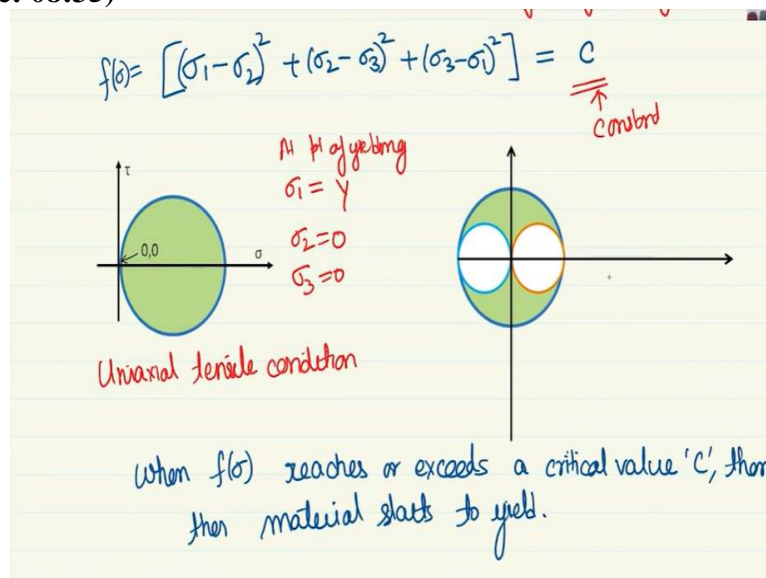 f(σ)= [(σ₁-σ₂)² + (σ₂-σ₃)² + (σ₃-σ₁)²] = C
constant
At pt of yielding
σ₁ = Y
σ₂=0
σ₃=0
τ
0,0
σ
Uniaxial tensile condition
When f(σ) reaches or exceeds a critical value 'C', then
then material starts to yield.